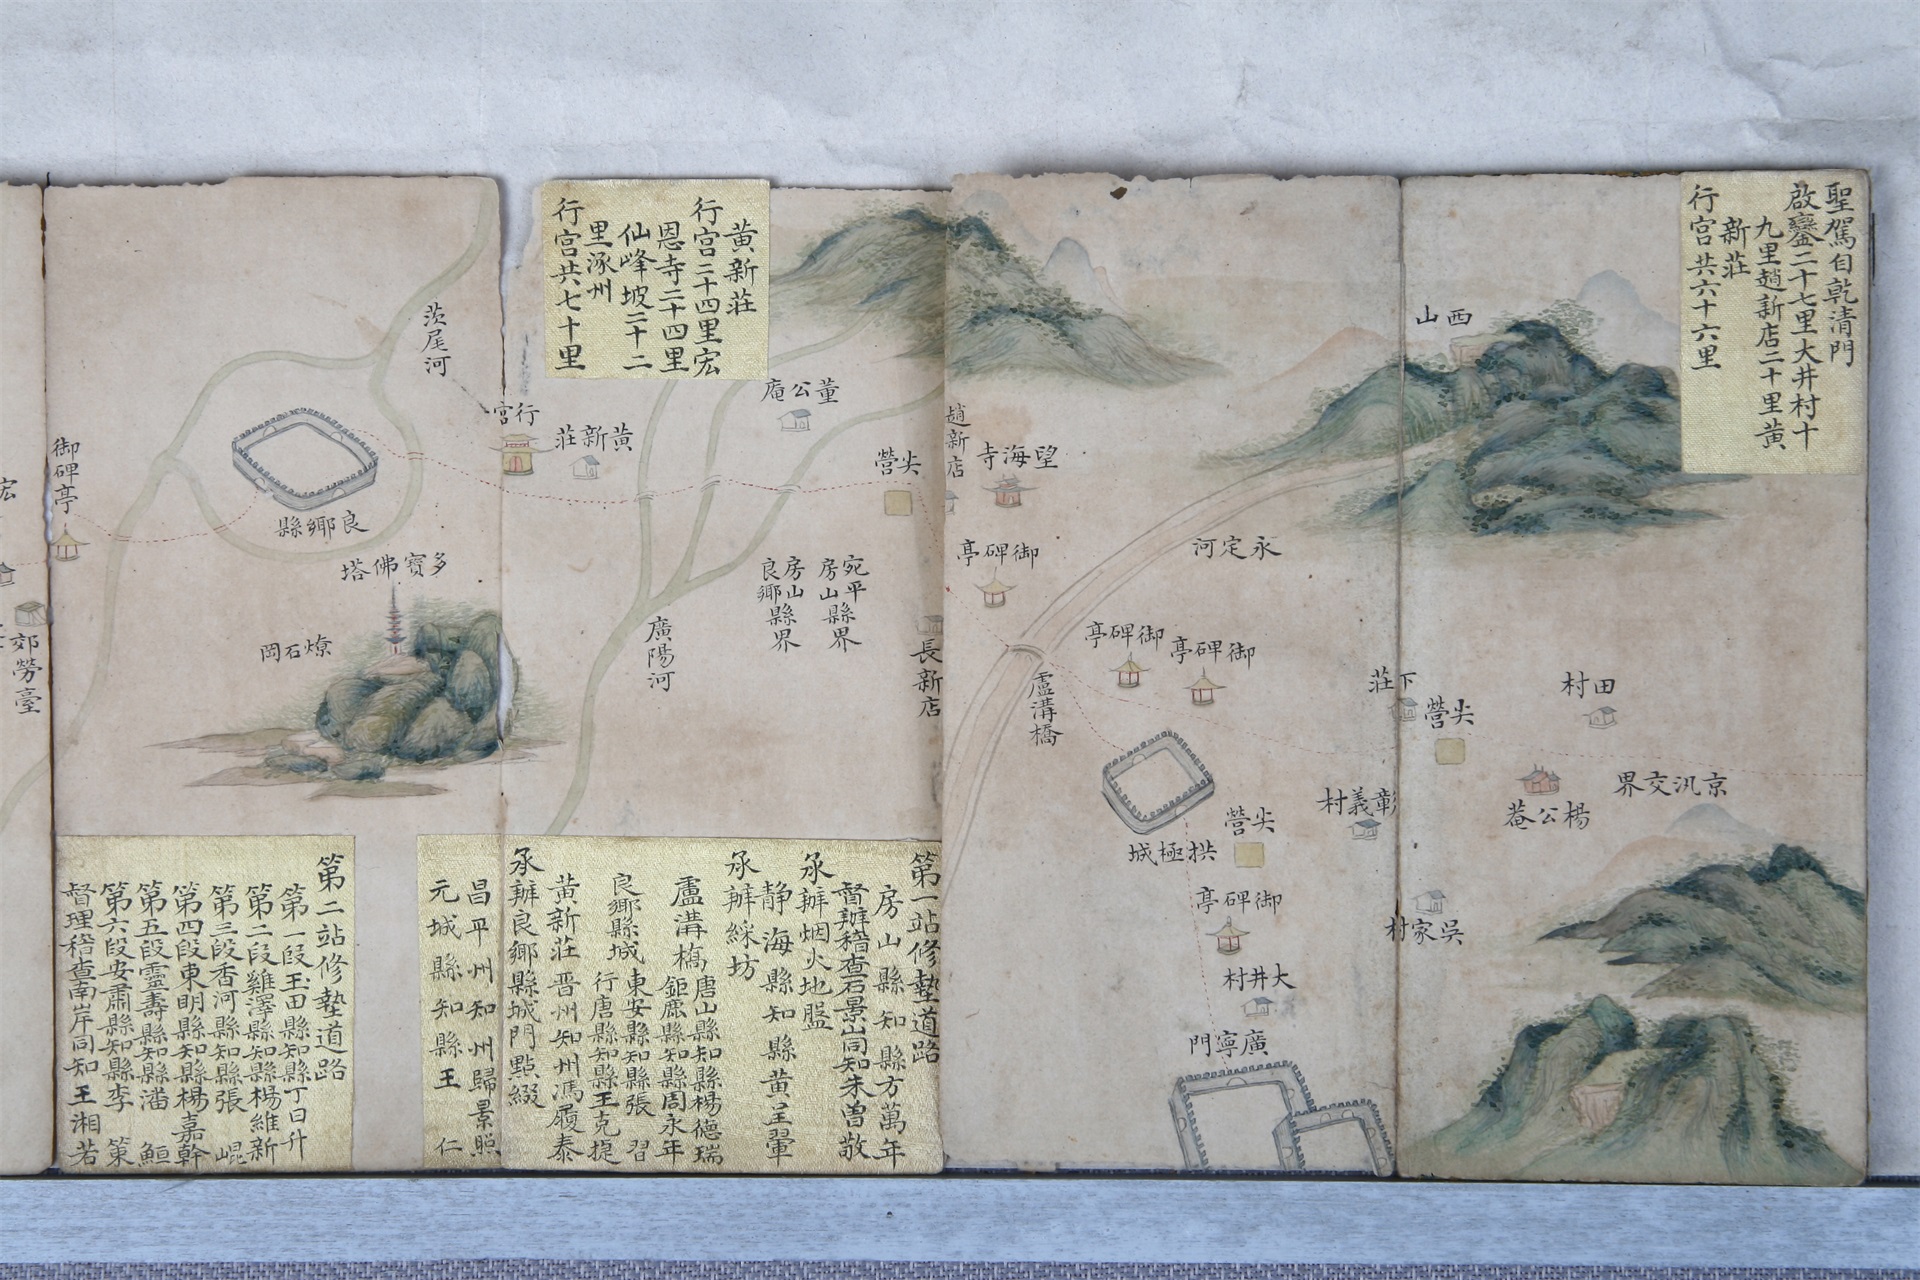 聖駕自乾清門
啟鑾二十七里大井村十
九里趙新店二十里黃
新莊
行宮共六十六里
西山
田村
京汛交界
楊公菴
尖營
下莊
彰義村
吳家村
永定河
望海寺
趙新店
御碑亭
御碑亭
御碑亭
盧溝橋
拱極城
尖營
御碑亭
大井村
廣寧門
黃新莊
行宮二十四里宏
恩寺二十四里
仙峰坡二十二
里涿州
行宮共七十里
董公庵
尖營
黃新莊
行宮
宛平縣界
房山縣界
房山縣界
良鄉縣界
長新店
廣陽河
茨尾河
良鄉縣
多寶佛塔
燎石岡
御碑亭
郊勞臺
宏
第一站修墊道路
房山縣知縣方萬年
督辦稽查石景山同知朱曾敬
承辦烟火地盤
靜海縣知縣黃呈翬
承辦綵坊
盧溝橋
唐山縣知縣楊德瑞
鉅鹿縣知縣周永年
良鄉縣城
東安縣知縣張習
行唐縣知縣王克提
黃新莊晉州知州馮履泰
承辦良鄉縣城門點綴
昌平州知州歸景照
元城縣知縣王仁
第二站修墊道路
第一段玉田縣知縣丁日升
第二段雞澤縣知縣楊維新
第三段香河縣知縣張崐
第四段東明縣知縣楊嘉幹
第五段靈壽縣知縣潘䱷
第六段安肅縣知縣李策
督理稽查南岸同知王湘若